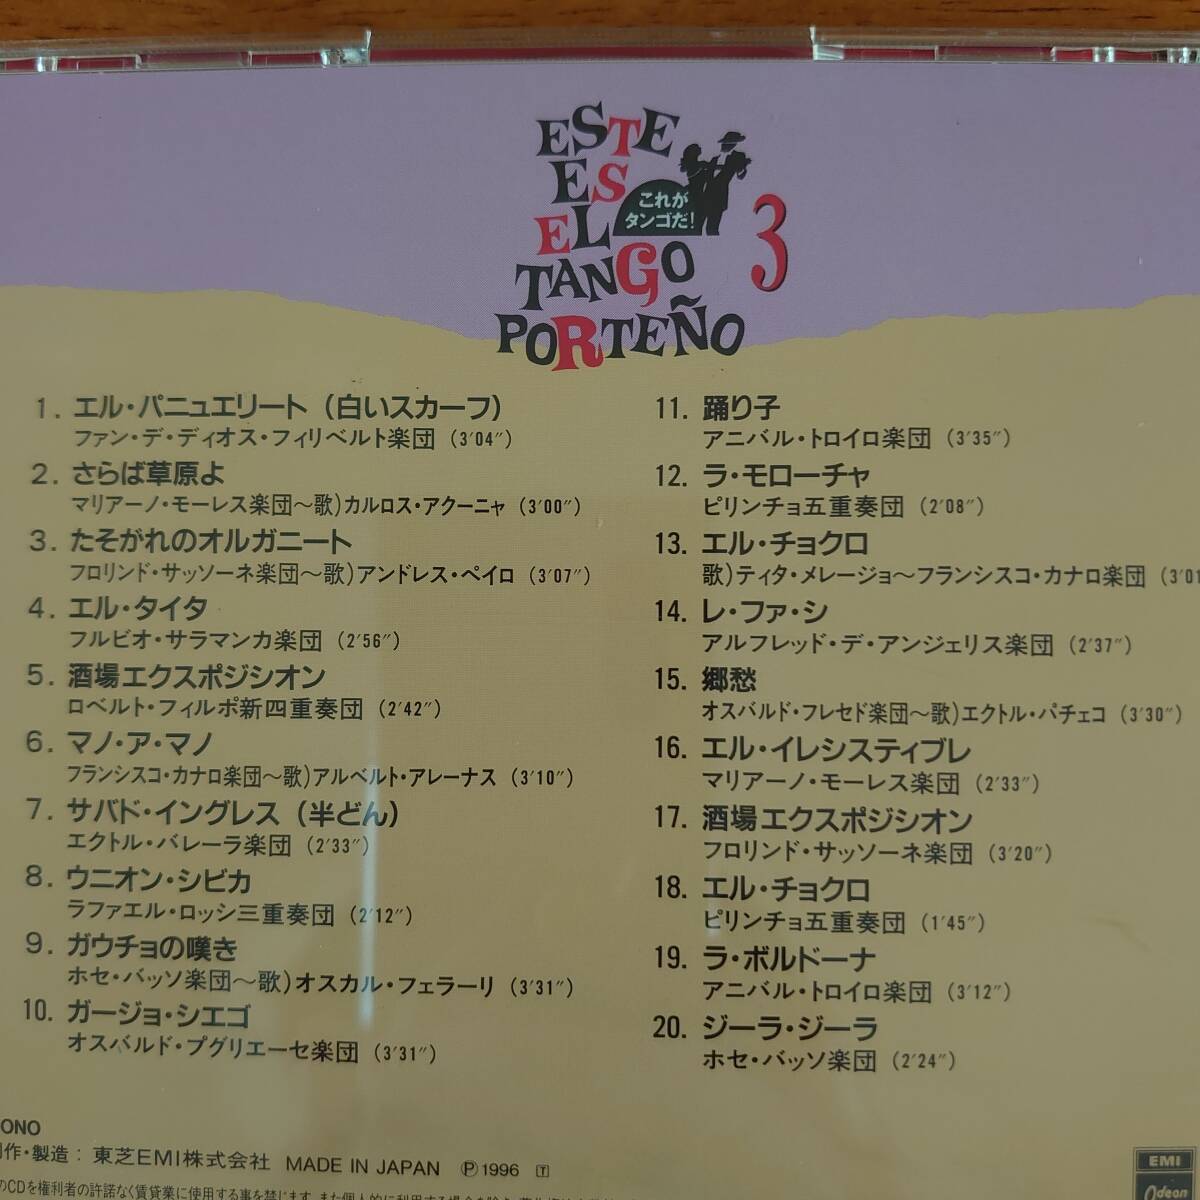 ESTE
ES
EL
TANGO
PORTEÑO
これが
タンゴだ!
3
1. エル・パニュエリート(白いスカーフ)
ファン・デ・ディオス・フィリベルト楽団 (3'04")
2. さらば草原よ
マリアーノ・モーレス楽団〜歌)カルロス・アクーニャ (3'00")
3. たそがれのオルガニート
フロリンド・サッソーネ楽団〜歌)アンドレス・ペイロ (3'07")
4. エル・タイタ
フルビオ・サラマンカ楽団 (2'56")
5. 酒場エクスポジシオン
ロベルト・フィルポ新四重奏団 (2'42")
6. マノ・ア・マノ
フランシスコ・カナロ楽団〜歌)アルベルト・アレーナス (3'10")
7. サバド・イングレス(半どん)
エクトル・バレーラ楽団 (2'33")
8. ウニオン・シビカ
ラファエル・ロッシ三重奏団 (2'12")
9. ガウチョの嘆き
ホセ・バッソ楽団〜歌)オスカル・フェラーリ (3'31")
10. ガージョ・シエゴ
オスバルド・プグリエーセ楽団 (3'31")
11. 踊り子
アニバル・トロイロ楽団 (3'35")
12. ラ・モローチャ
ピリンチョ五重奏団 (2'08")
13. エル・チョクロ
歌)ティタ・メレージョ〜フランシスコ・カナロ楽団 (3'01
14. レ・ファ・シ
アルフレッド・デ・アンジェリス楽団 (2'37")
15. 郷愁
オスバルド・フレセド楽団〜歌)エクトル・パチェコ (3'30")
16. エル・イレシスティブレ
マリアーノ・モーレス楽団 (2'33")
17. 酒場エクスポジシオン
フロリンド・サッソーネ楽団 (3'20")
18. エル・チョクロ
ピリンチョ五重奏団 (1'45")
19. ラ・ボルドーナ
アニバル・トロイロ楽団 (3'12")
20. ジーラ・ジーラ
ホセ・バッソ楽団 (2'24")
ONO
作・製造：東芝EMI株式会社 MADE IN JAPAN Ⓟ1996 T
のCDを権利者の許諾なく賃貸業に使用する事を禁じます。また個人的に利用する場合を除き、
EMI
Odeon